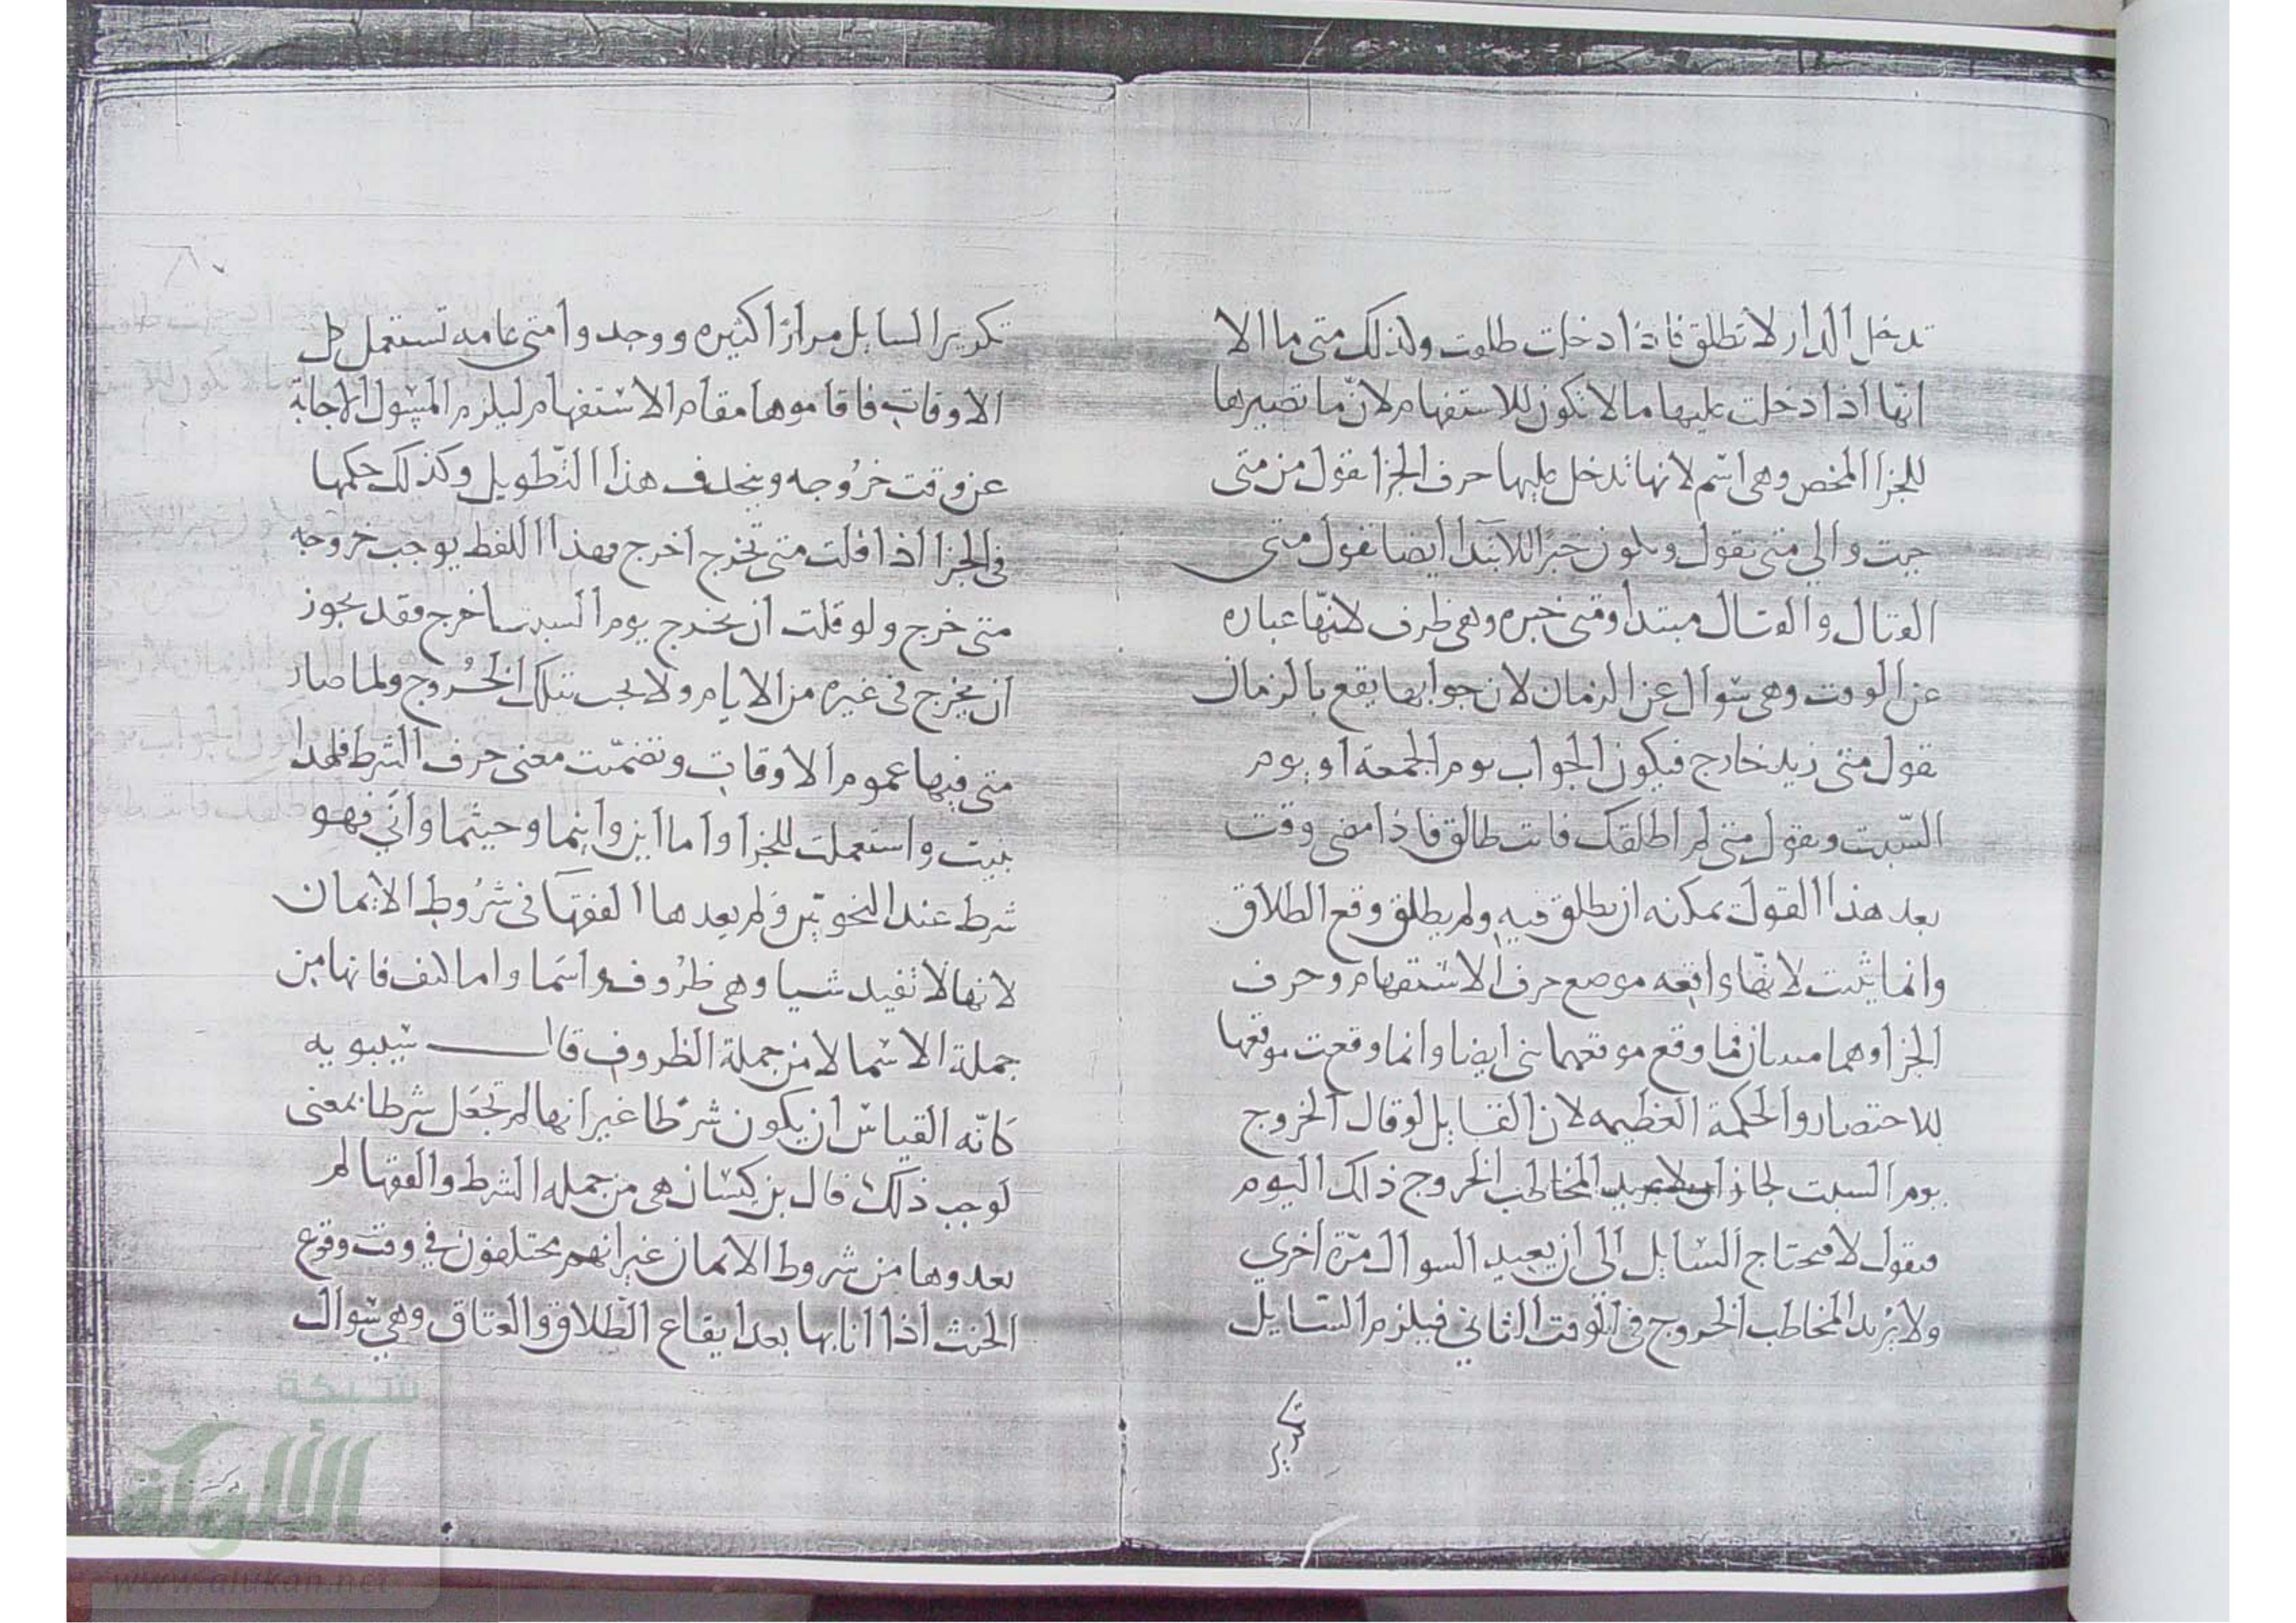 تدخل الدار لا تطلق فاذا دخلت طلقت وكذلك متى ما الا
انها اذا دخلت عليها ما لا تكون للاستفهام لانّ ما تصيرها
للجزا المخص وهى اسم لانها تدخل عليها حرف الجزا تقول من متى
جيت والي متى تقول وتكون خبرا للابتدا ايضا تقول متى
القتال والقتال مبتدا ومتى خبره وهى ظرف لانّها عباره
عن الوقت وهى سوال عن الزمان لان جوابها يقع بالزمان
تقول متى زيد خارج فيكون الجواب يوم الجمعة او يوم
السّبت وتقول متى لم اطلقك فانت طالق فاذا مضى وقت
بعد هذا القول يمكنه ان يطلق فيه ولم يطلق وقع الطلاق
وانما بنيت لانها واقعه موضع حرف الاستفهام وحرف
الجزا وهما مبنيان فما وقع موقعهما بنى ايضا وانما وقعت موقعها
للاختصار والحكمة العظيمه لان القايل لو قال الخروج
يوم السبت لجاز ان لا يريد المخاطب الخروج ذلك اليوم
فيقول لا فيحتاج السايل الى ان يعيد السوال مرّة اخري
ولا يُريد المخاطب الخروج فى الوقت الثاني فيلزم السّايل
تكرير
تكرير السايل مرارًا كثيره ووجدوا متى عامه تستعمل كل
الاوقات فاقاموها مقام الاستفهام ليلزم المسول الاجابة
عن وقت خرُوجه وينحذف هذا التّطويل وكذلك حكمها
فى الجزا اذا قلت متى تخرج اخرج فهذا اللفظ يوجب خروجه
متى خرج ولو قلت ان تخرج يوم السبت اخرج فقد يجوز
ان يخرج فى غيره من الايام ولا يجب بتلك الخُروج ولما صار
متى فيها عموم الاوقات وتضمّنت معنى حرف الشرط فلهذا
بنيت واستعملت للجزا واما اين واينما وحيثما وانّي فهو
شرط عند النحويّين ولم يعدها الفقهآ فى شرُوط الايمان
لانها لا تفيد شيا وهى ظرُوف واسما واما كيف فانها من
جملة الاسما لا من جملة الظروف قال سيبويه
كانّه القياس ان يكون شرطا غير انها لم تجعل شرطا بمعنى
لوجب ذلك قال بن كيسان هى من جمله الشرط والفقها لم
يعدوها من شروط الايمان غير انهم يختلفون فى وقت وقوع
الحنث اذا اتا بها بعد ايقاع الطلاق والعتاق وهى سوال
شبكة
الألوكة
www.alukah.net